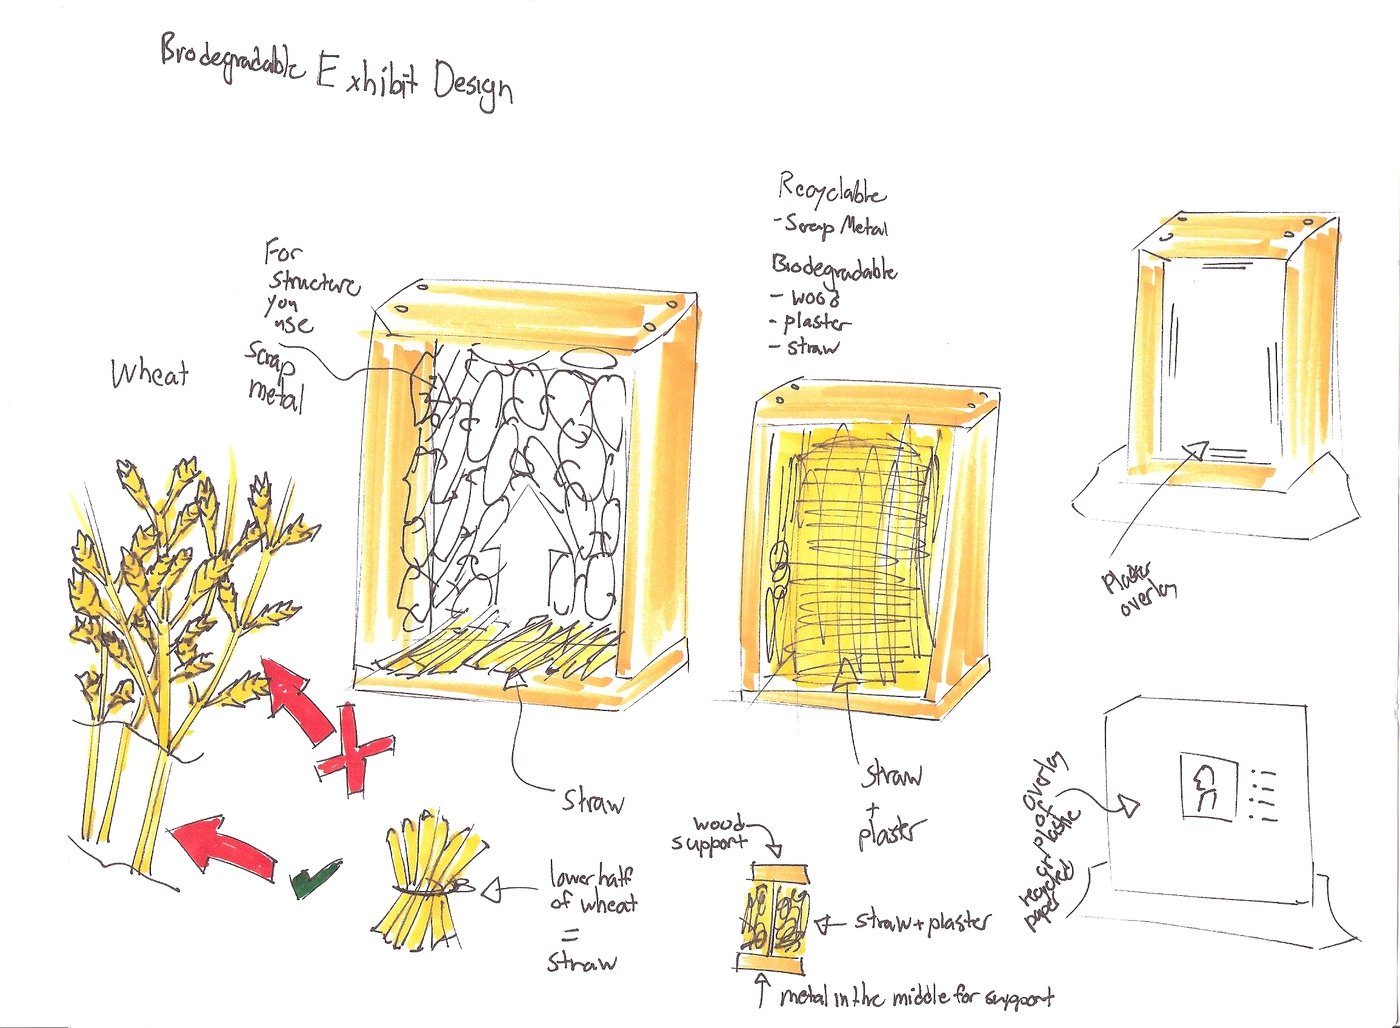 Biodegradable Exhibit Design
For
Structure
you
use
Scrap
metal
Wheat
Recyclable
- Scrap Metal
Biodegradable
- wood
- plaster
- straw
Plaster
overlay
straw
straw
+
plaster
lower half
of wheat
=
straw
wood
support
straw + plaster
metal in the middle for support
overlay
of
plastic
or
recycled
paper